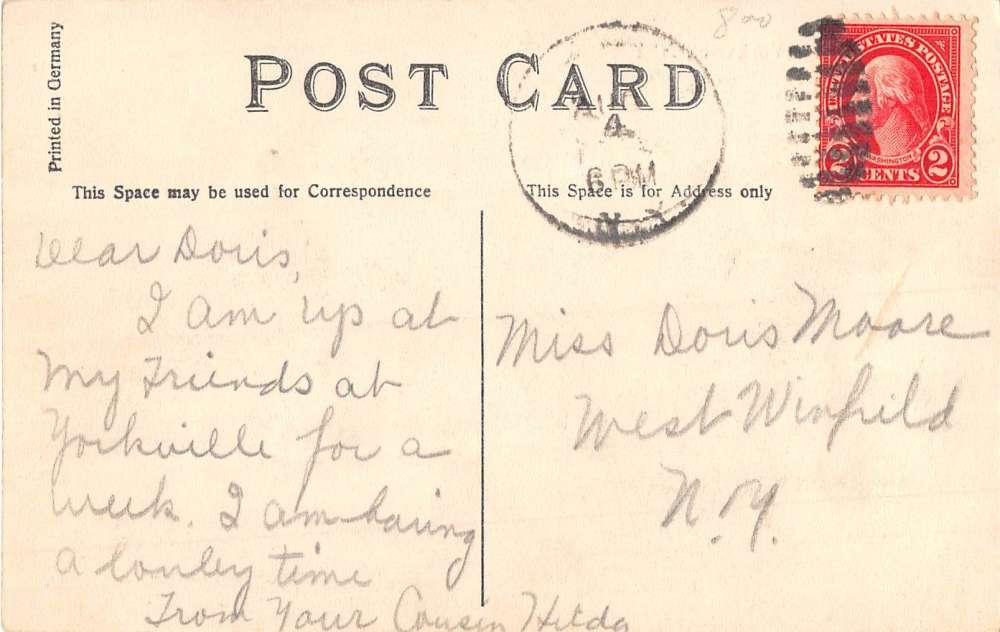 Printed in Germany
800
POST CARD
4
6 PM
N.Y.
UNITED STATES POSTAGE
WASHINGTON
2 CENTS 2
This Space may be used for Correspondence
This Space is for Address only
Dear Doris,
I am up at
my Friends at
Yorkville for a
week. I am having
a lonley time
From Your Cousin Hilda
Miss Doris Moore
West Winfield
N.Y.